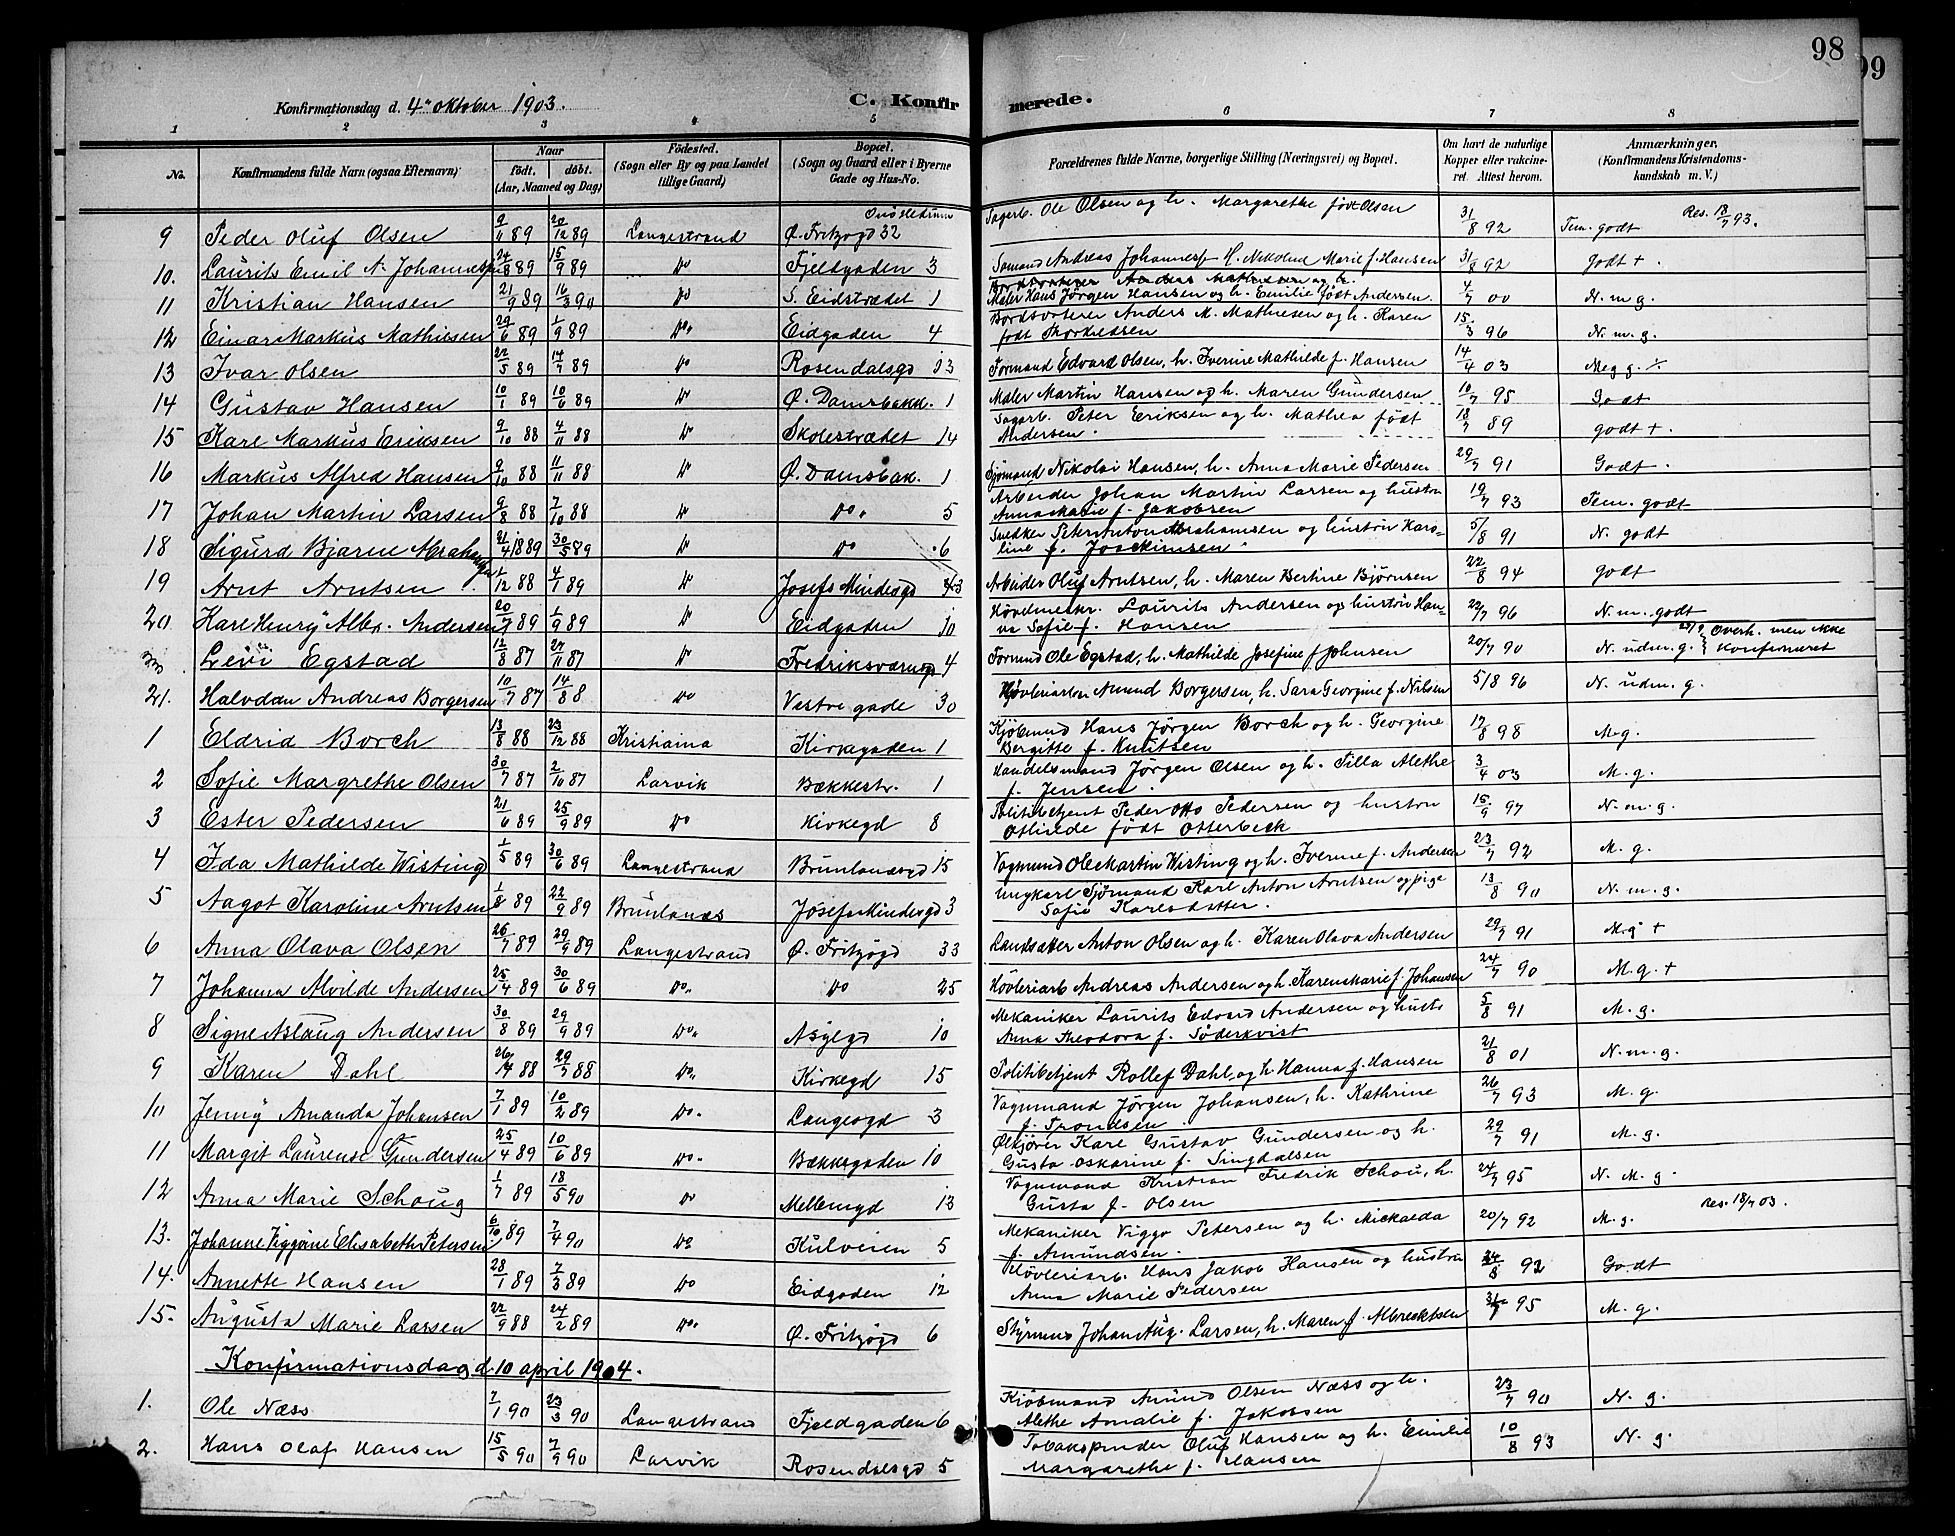 98
99
Konfirmationsdag d. 4de oktober 1903.
C. Konfirmerede.
1 2 3 4 5 6 7 8
No. Konfirmandens fulde Navn (ogsaa Efternavn) Naar født. døbt. (Aar, Maaned og Dag) Fødested. (Sogn eller By og paa Landet tillige Gaard) Bopæl. (Sogn og Gaard eller i Byerne Gade og Hus-No. Forældrenes fulde Navne, borgerlige Stilling (Næringsvei) og Bopæl. Om havt de naturlige Kopper eller vakcineret. Attest herom. Anmærkninger, (Konfirmandens Kristendomskundskab m. V.)
9 Peder Oluf Olsen 9/11 89 20/12 89 Langestrand Ø. Fritzøgd 32 Sagarb. Ole Olsen og h. Margarethe født Olsen 31/8 92 Tem. godt Res. 13/7 93.
10. Laurits Emil N. Johannesen 24/8 89 15/9 89 Do Fjeldgaden 3 Sømand Andreas Johannesen H. Nikoline Marie f. Hansen 31/8 92 Godt + .
11 Kristian Hansen 21/9 89 16/3 90 Do S. Eidstrædet 1 Maler Hans Jörgen Hansen og h. Emilie født Andersen. 4/7 00 N. m g.
12 Einar Markus Mathiesen 29/6 89 1/9 89 Do. Eidgaden 4 Bordsorterer Anders M. Mathiesen og h. Karen født Thorkildsen 15/3 96 N. m. g.
13 Ivar Olsen 22/5 89 14/7 89 Do Rosendalsgd 13 Formand Edvard Olsen, h. Iverine Mathilde f. Hansen 14/4 03 Meg g.
14 Gustav Hansen 10/1 89 10/6 89 Do Ø. Damsbakk. 1 Maler Martin Hansen og h. Maren Gundersen 10/7 95 Godt
15 Karl Markus Eriksen 9/10 88 4/11 88 Do Skolestrædet 14 Sagarb. Peter Eriksen og h. Mathea født Andersen. 18/7 89 godt +.
16 Markus Alfred Hansen 9/10 88 11/11 88 Do Ø. Damsbak. 1 Sjömand Nikolai Hansen, h. Anna Marie Pedersen 29/7 91 Godt.
17 Johan Martin Larsen 9/8 88 7/10 88 Do Do. 5 Arbeider Johan Martin Larsen og hustru Anna Marie f. Jakobsen 19/7 93 Tem. godt
18 Sigurd Bjarne Abrahamsen 21/4 1889 30/5 89 Do Do 6 Snedker Peter Anton Abrahamsen og hustru Karoline f. Joackimsen 5/8 91 N. godt
19 Arnt Arntsen 1/12 88 4/1 89 Do Josefs Mindesgd 43 Arbeider Oluf Arntsen, h. Maren Bertine Bjørnsen 22/8 94 godt
20 Karl Henry Albr. Andersen 20/7 89 1/9 89 Do Eidgaden 10 Hövelmestr. Laurits Andersen og hustru Hanna Sofie f. Hansen 22/7 96 N. m. godt
Levi Egstad 12/8 87 27/11 87 Do Fredriksværngd 4 Formnd Ole Egstad, h. Mathilde Josefine f. Johnsen 20/7 90 N. udm. g. 25/9 Overh. men ikke Konfirmeret
21. Halvdan Andreas Borgersen 10/7 87 14/8 8 Do Vestregade 30 Høvleriarb Amund Borgersen, h. Sara Georgine f. Nilsen 5/8 96 N. udm. g.
1 Eldrid Borch 13/8 88 23/12 88 Kristiania Kirkegaden 1 Kjöbmnd Hans Jørgen Borch og h. Georgine Bergitte f. Knutsen 17/8 98 M.g.
2 Sofie Margrethe Olsen 30/7 87 2/10 87 Larvik Bækkestr. 1 Handelsmand Jörgen Olsen og h. Tilla Alethe f. Jensen 3/4 03 M. g.
3 Ester Pedersen 21/6 89 25/9 89 Do Kirkegd 8 Politibetjent Peder Otto Pedersen og hustru Othilde født Otterbeck 15/9 97 N. m. g.
4 Ida Mathilde Wisting 1/5 89 30/6 89 Langestrand Brunlandsgd 15 Vognmand Ole Martin Wisting og h. Iverine f. Andersen 23/7 92 M. g.
5 Aagot Karoline Arntsen 1/8 89 22/9 89 Brunlanæs Josefs Mindesgd 3 Ungkarl Sjømand Karl Anton Arntsen og pige Sofie Karlsdatter. 13/8 90 N. m. g.
6 Anna Olava Olsen 26/7 89 29/9 89 Langestrand Ø. Fritzøgd 33 Landsætter Anton Olsen og h. Karen Olava Andersen 29/7 91 M.g +
7 Johanna Alvilde Andersen 25/4 89 30/6 89 Do. Do 25 Høvleriarb Andreas Andersen og h Karen Marie f. Johansen 24/7 90 M. g. +
8 Signe Aslaug Andersen 30/8 89 29/9 89 Do. Asyegd 10 Mekaniker Laurits Edvard Andersen og hustr Anna Theodora f. Söderkvist 5/8 91 M. g.
9 Karen Dahl 26/4 88 29/7 88 Do. Kirkegd 15 Politibetjent Rollef Dahl, og h. Hanna f. Hansen 21/8 01 N. m. g.
10 Jenny Amanda Johansen 7/1 89 10/2 89 Do. Langesgd 3 Vognmand Jörgen Johansen, h. Kathrine f. Trondsen. 26/7 93 M. g.
11 Margit Laurense Gundersen 25/4 89 10/6 89 Do. Bækkegaden 10 Ølkjører Karl Gustav Gundersen og h. Gusta Oskarine f. Singdalsen 29/7 91 M. g.
12 Anna Marie Schoug 1/7 89 18/5 90 Do Mellemgd 13 Vognmand Kristian Fredrik Schou, h. Gusta f. Olsen 24/7 95 N. M. g.
13. Johanne Viggoine Elisabeth Petersen 6/10 89 7/4 90 Do Kulveien 5 Mekaniker Viggo Petersen og h. Mickalda f. Amundsen. 20/7 92 M. g. Res. 18/7 03.
14. Annette Hansen 28/1 89 7/3 89 Do Eidgaden 12 Høvleriarb. Hans Jakob Hansen og hustru Anna Marie Pedersen 24/8 92 Godt
15. Augusta Marie Larsen 22/9 88 24/2 89 Do. Ø. Fritzøgd 6 Styrmnd Johan Aug. Larsen, h. Maren f. Albrecktsen 31/7 95 M. g.
Konfirmationsdag d. 10 april 1904.
1. Ole Næss 7/1 90 23/3 90 Langestrand Fjeldgaden 6 Kjöbmand Amund Olsen Næss og h. Alethe Amalie f. Jakobsen 23/7 90 N. g.
2. Hans Olaf Hansen 15/5 90 7/9 90 Larvik Rosendalsgd 5 Tobakspinder Oluf Hansen og h. Emilie Margarethe f. Hansen 10/8 93 N. g.